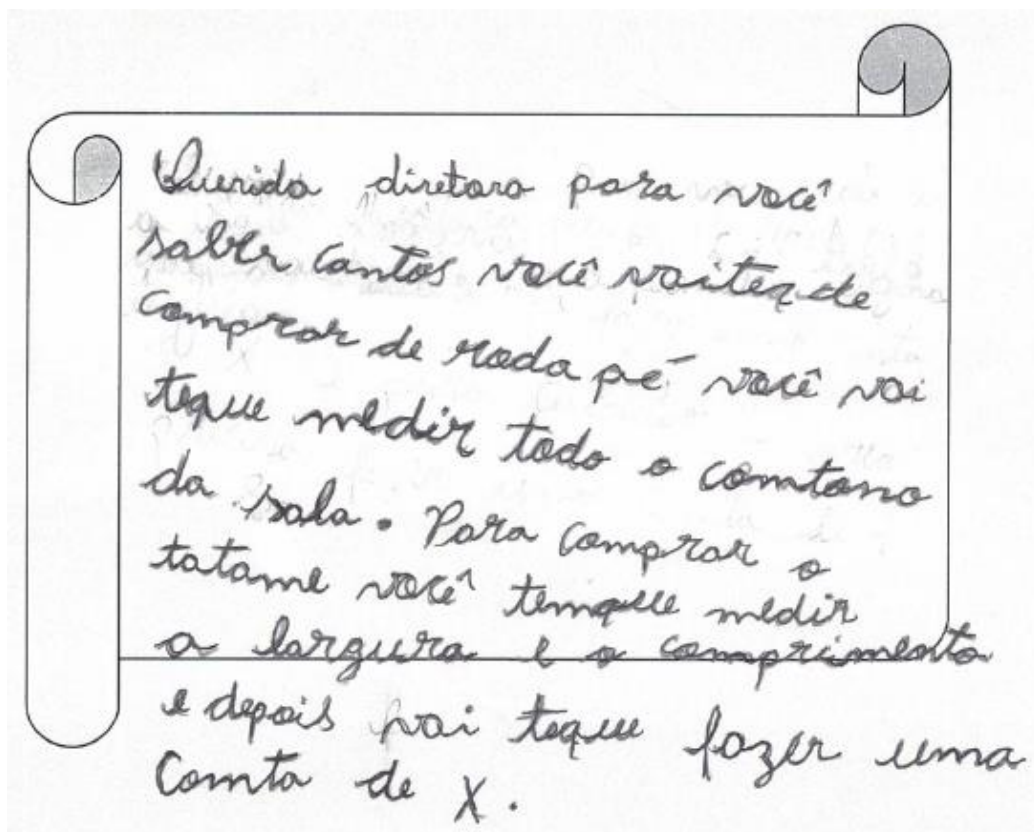 Querida diretora para você
saber cantos você vaiter de
comprar de roda pé você vai
teque medir todo o comtono
da sala. Para comprar o
tatame você temque medir
a largura e o comprimento
e depois vai teque fazer uma
Comta de X.